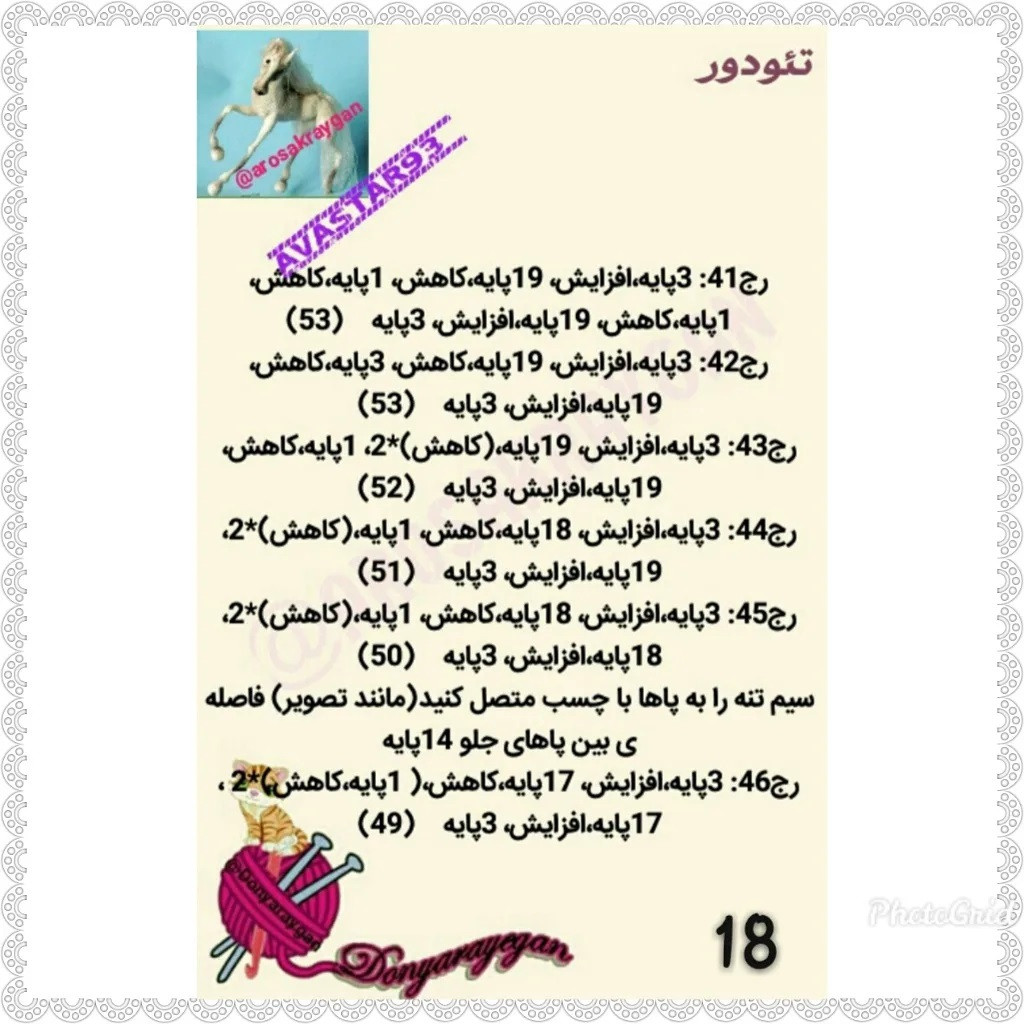 تئودور
@arosakraygan
AVASTAR93
رج41: 3پایه،افزایش، 19پایه،کاهش، 1پایه،کاهش،
1پایه،کاهش، 19پایه،افزایش، 3پایه (53)
رج42: 3پایه،افزایش، 19پایه،کاهش، 3پایه،کاهش،
19پایه،افزایش، 3پایه (53)
رج43: 3پایه،افزایش، 19پایه،(کاهش)*2، 1پایه،کاهش،
19پایه،افزایش، 3پایه (52)
رج44: 3پایه،افزایش، 18پایه،کاهش، 1پایه،(کاهش)*2،
19پایه،افزایش، 3پایه (51)
رج45: 3پایه،افزایش، 18پایه،کاهش، 1پایه،(کاهش)*2،
18پایه،افزایش، 3پایه (50)
سیم تنه را به پاها با چسب متصل کنید(مانند تصویر) فاصله
ی بین پاهای جلو 14پایه
رج46: 3پایه،افزایش، 17پایه،کاهش،( 1پایه،کاهش،)*2 ،
17پایه،افزایش، 3پایه (49)
@Donyaraygan
Donyarayegan
18
PhotoGrid